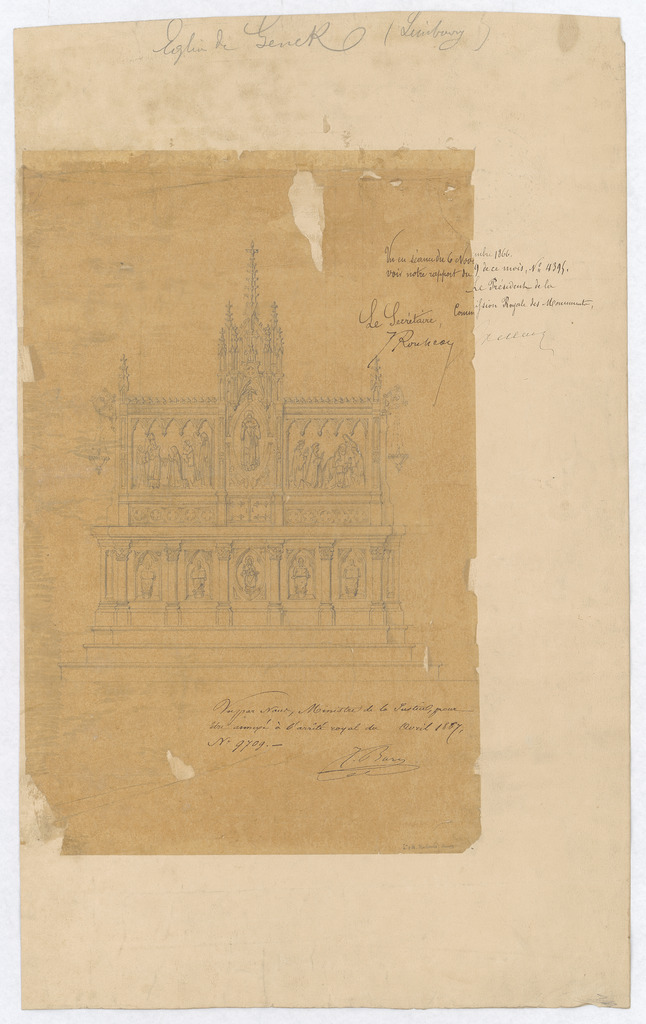 Eglise de Genck (Limbourg)
Vu en séance du 6 Novembre 1866.
voir notre rapport du 9 de ce mois, N° 4395.
Le Président de la
Commission Royale des Monuments,
Le Secrétaire,
J Rousseau
Vu par Nous, Ministre de la Justice, pour
être annexé à l'arrêté royal du Avril 1867,
N° 9709.—
J. Bara